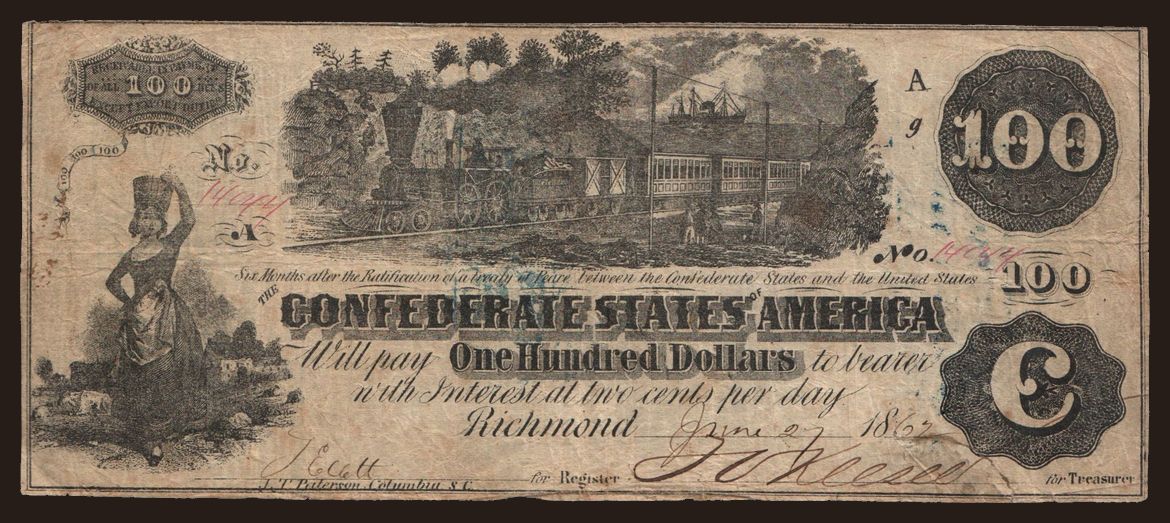 RECEIVABLE IN PAYMENT
OF ALL 100 DUES
EXCEPT EXPORT DUTIES
100 100 100
No.
A
A
9
100
No.
100
Six Months after the Ratification of a Treaty of Peace between the Confederate States and the United States
THE CONFEDERATE STATES OF AMERICA
Will pay One Hundred Dollars to bearer
with Interest at two cents per day
Richmond June 27 1862
C
J Ellett
for Register
for Treasurer
J. T. Paterson, Columbia, S.C.